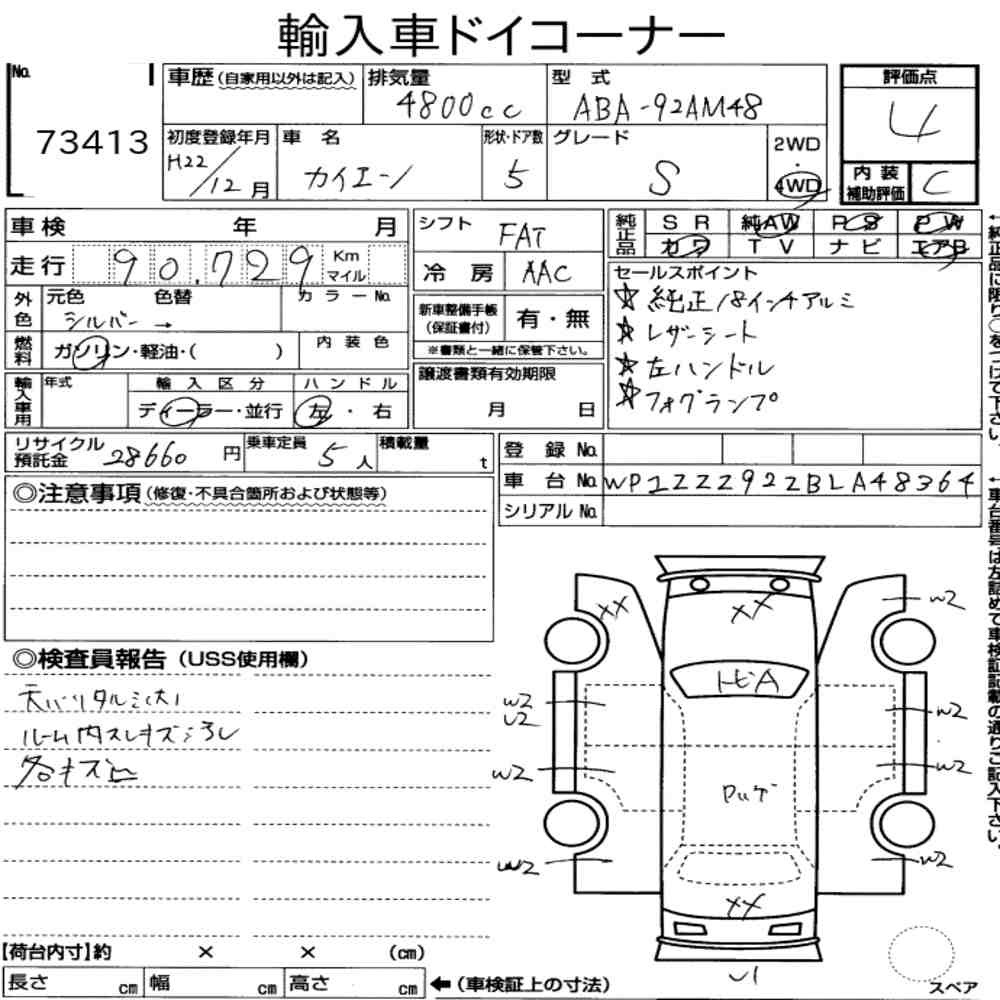 輸入車ドイコーナー
No. 73413
車歴 (自家用以外は記入)
排気量 4800cc
型式 ABA-92AM48
評価点 4
初度登録年月 H22/12月
車名 カイエン
形状・ドア数 5
グレード S
2WD・4WD
内装補助評価 C
車検 年 月
シフト FAT
純正品 SR 純AW PS PW
カワ TV ナビ エアB
走行 90,729 Km マイル
冷房 AAC
セールスポイント
☆純正18インチアルミ
☆レザーシート
☆左ハンドル
☆フォグランプ
外色 元色 シルバー→ 色替 カラーNo.
新車整備手帳(保証書付) 有・無
※書類と一緒に保管下さい。
燃料 ガソリン・軽油・( ) 内装色
譲渡書類有効期限 月 日
輸入車用 年式 輸入区分 ハンドル
ディーラー・並行 左・右
リサイクル預託金 28660円
乗車定員 5人
積載量 t
登録No.
車台No. WP1ZZZ92ZBLA48364
シリアルNo.
◎注意事項 (修復・不具合箇所および状態等)
◎検査員報告 (USS使用欄)
天バリタルミ(大)
ルーム内スレキズ汚レ
各キズ凹
XX
XX
W2
トビA
W2
U2
W2
W2
W2
W2
W2
XX
U1
【荷台内寸】約 × × (cm)
長さ cm 幅 cm 高さ cm ←(車検証上の寸法)
スペア
←純正品に限り○をつけて下さい。
←車台番号は左詰めで車検証記載の通りご記入下さい。